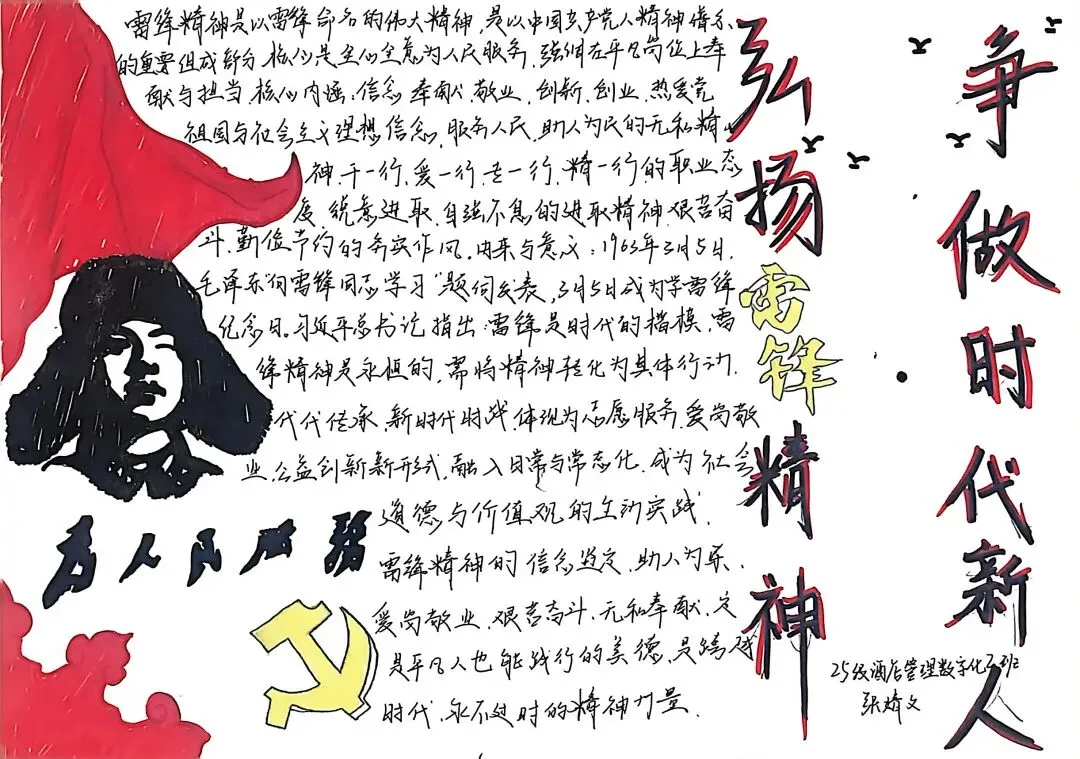 雷锋精神是以雷锋命名的伟大精神,是以中国共产党人精神谱系
的重要组成部分,核心是全心全意为人民服务,强调在平凡岗位上奉
献与担当,核心内涵:信念 奉献,敬业,创新,创业,热爱党
祖国与社会主义理想信念,服务人民,助人为民的无私精
神,干一行,爱一行,专一行,精一行的职业态
度 锐意进取,自强不息的进取精神,艰苦奋
斗,勤俭节约的务实作风。由来与意义:1963年3月5日,
毛泽东"向雷锋同志学习"题词发表,3月5日成为学雷锋
纪念日。习近平总书记指出:雷锋是时代的楷模,雷
锋精神是永恒的,需将精神转化为具体行动,
代代传承,新时代时战,体现为志愿服务,爱岗敬
业,公益创新新形式,融入日常与常态化,成为社会
道德与价值观的生动实践,
雷锋精神的信念坚定,助人为乐,
爱岗敬业,艰苦奋斗,无私奉献,定
是平凡人也能践行的美德,是跨越
时代,永不过时的精神力量。
为人民服务
弘扬雷锋精神
争做时代新人
25级酒店管理数字化 班
张 文